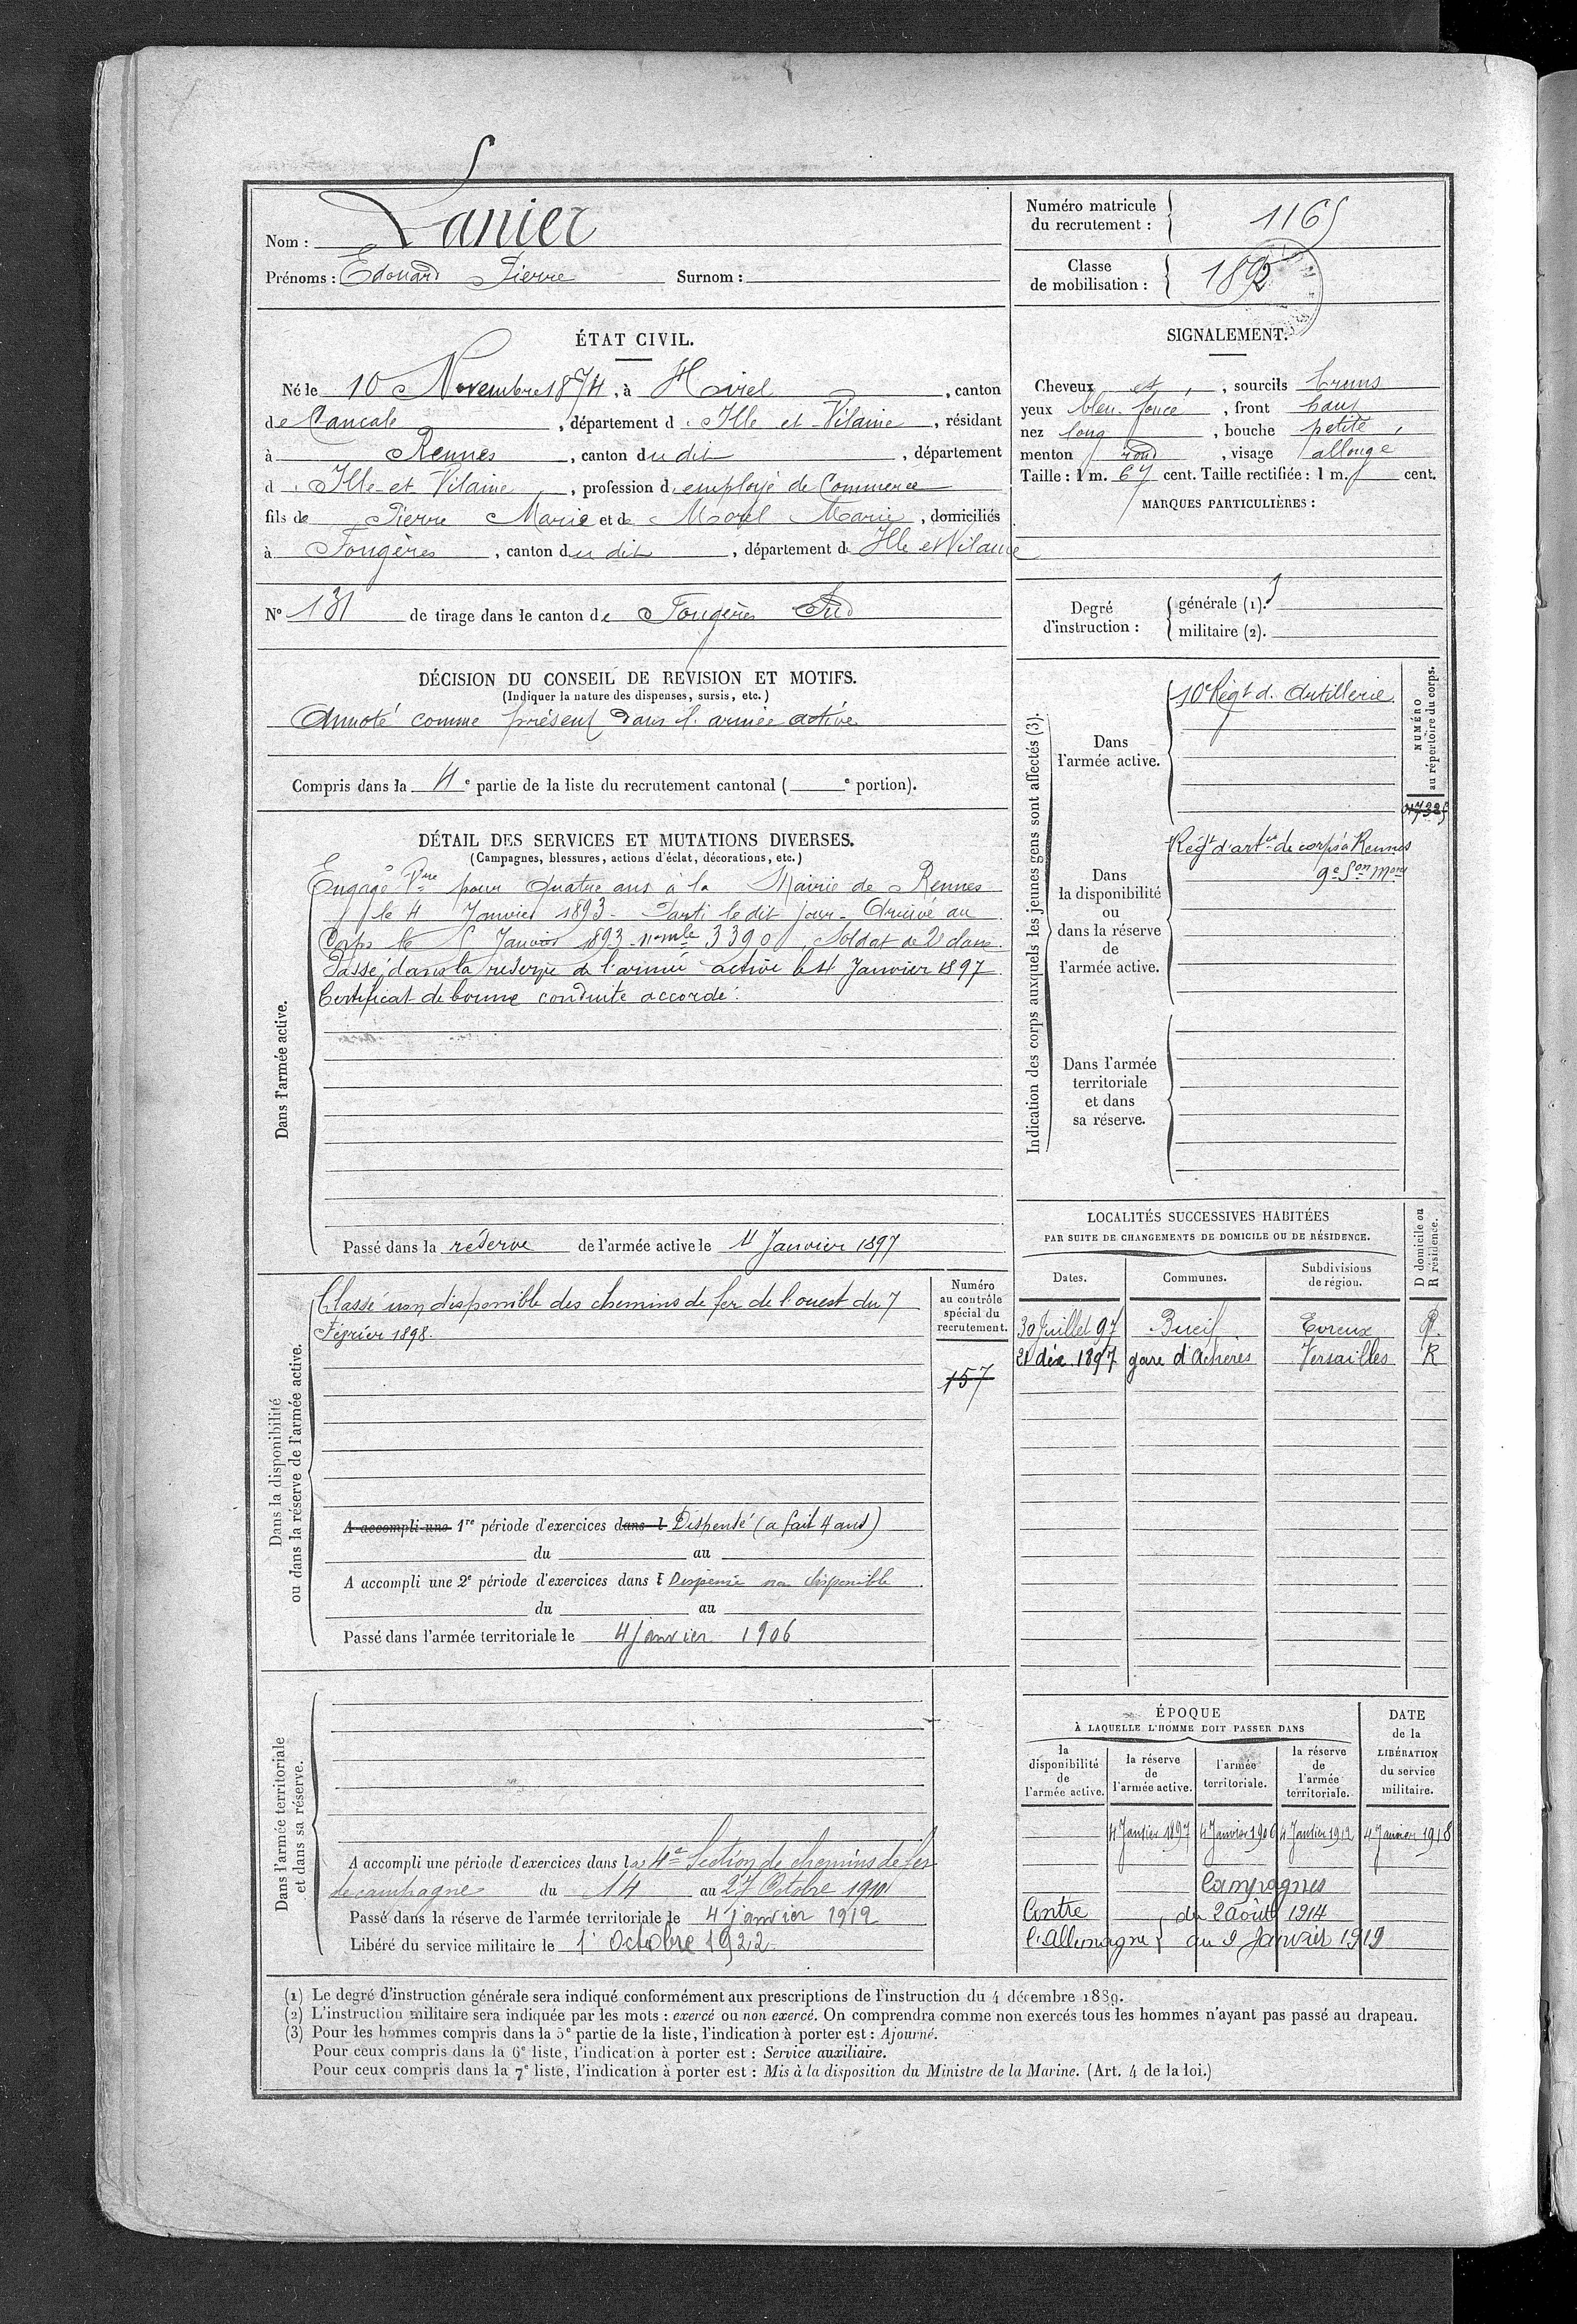 Nom : Lanier
Prénoms : Edouard Pierre Surnom :
Numéro matricule du recrutement : 1165
Classe de mobilisation : 1892
ÉTAT CIVIL.
Né le 10 Novembre 1874, à Hirel, canton
de Cancale, département d'Ille et Vilaine, résidant
à Rennes, canton du dit, département
d'Ille et Vilaine, profession d'employé de Commerce
fils de Pierre Marie et de Morel Marie, domiciliés
à Fougères, canton du dit, département d'Ille et Vilaine
N° 131 de tirage dans le canton de Fougères Sud
SIGNALEMENT.
Cheveux et, sourcils bruns
yeux bleu foncé, front haut
nez long, bouche petite,
menton rond, visage allongé
Taille : 1 m. 67 cent. Taille rectifiée : 1 m. cent.
MARQUES PARTICULIÈRES :
Degré d'instruction : générale (1). 3
militaire (2).
DÉCISION DU CONSEIL DE REVISION ET MOTIFS.
(Indiquer la nature des dispenses, sursis, etc.)
Annoté comme présent dans l'armée active
Compris dans la 4e partie de la liste du recrutement cantonal ( e portion).
DÉTAIL DES SERVICES ET MUTATIONS DIVERSES.
(Campagnes, blessures, actions d'éclat, décorations, etc.)
Dans l'armée active.
Engagé Vre pour quatre ans à la Mairie de Rennes
le 4 Janvier 1893 - Parti le dit jour - Arrivé au
Corps le 5 Janvier 1893 - n° mle 3390, Soldat de 2e classe.
Passé dans la réserve de l'armée active le 4 Janvier 1897
Certificat de bonne conduite accordé.
Passé dans la réserve de l'armée active le 4 Janvier 1897
Indication des corps auxquels les jeunes gens sont affectés (3).
NUMÉRO au répertoire du corps.
Dans l'armée active.
10e Régt d'Artillerie
Dans la disponibilité ou dans la réserve de l'armée active.
Régt d'artie de corps à Rennes
9e Son
Dans l'armée territoriale et dans sa réserve.
Dans la disponibilité ou dans la réserve de l'armée active.
Classé non disponible des chemins de fer de l'ouest du 7
Février 1898.
Numéro au contrôle spécial du recrutement.
157
A accompli une 1re période d'exercices dans l Dispensé (a fait 4 ans)
du au
A accompli une 2e période d'exercices dans l Dispensé non disponible
du au
Passé dans l'armée territoriale le 4 janvier 1906
LOCALITÉS SUCCESSIVES HABITÉES
PAR SUITE DE CHANGEMENTS DE DOMICILE OU DE RÉSIDENCE.
Dates. Communes. Subdivisions de région. D domicile ou R résidence.
30 Juillet 97 Bueil Evreux R.
21 déc. 1897 gare d'Achères Versailles R
Dans l'armée territoriale et dans sa réserve.
A accompli une période d'exercices dans la 4e Section de chemins de fer
de campagne du 14 au 27 Octobre 1910
Passé dans la réserve de l'armée territoriale le 4 janvier 1912
Libéré du service militaire le 1er Octobre 1922
ÉPOQUE
À LAQUELLE L'HOMME DOIT PASSER DANS
la disponibilité de l'armée active. la réserve de l'armée active. l'armée territoriale. la réserve de l'armée territoriale.
DATE de la LIBÉRATION du service militaire.
4 Janvier 1897 4 Janvier 1906 4 Janvier 1912 4 Janvier 1918
Campagnes
Contre du 2 août 1914
l'Allemagne au 9 Janvier 1919
(1) Le degré d'instruction générale sera indiqué conformément aux prescriptions de l'instruction du 4 décembre 1889.
(2) L'instruction militaire sera indiquée par les mots : exercé ou non exercé. On comprendra comme non exercés tous les hommes n'ayant pas passé au drapeau.
(3) Pour les hommes compris dans la 5e partie de la liste, l'indication à porter est : Ajourné.
Pour ceux compris dans la 6e liste, l'indication à porter est : Service auxiliaire.
Pour ceux compris dans la 7e liste, l'indication à porter est : Mis à la disposition du Ministre de la Marine. (Art. 4 de la loi.)